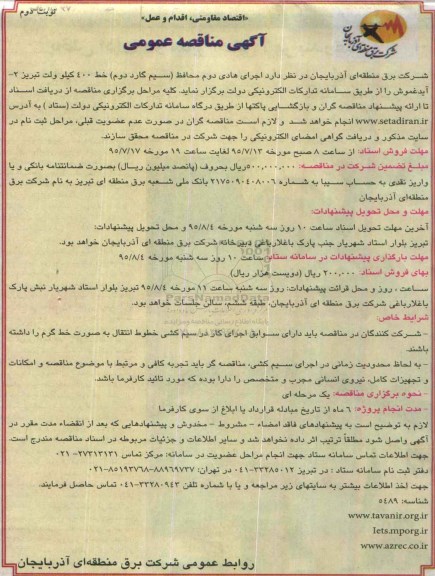 نوبت دوم
«اقتصاد مقاومتی، اقدام و عمل»
آگهی مناقصه عمومی
شرکت برق منطقه‌ای آذربایجان
شرکت برق منطقه‌ای آذربایجان در نظر دارد اجرای هادی دوم محافظ (سیم گارد دوم) خط ۴۰۰ کیلو ولت تبریز ۳-
آیدغموش را از طریق سامانه تدارکات الکترونیکی دولت برگزار نماید. کلیه مراحل برگزاری مناقصه از دریافت اسناد
تا ارائه پیشنهاد مناقصه گران و بازگشایی پاکتها از طریق درگاه سامانه تدارکات الکترونیکی دولت (ستاد) به آدرس
www.setadiran.ir انجام خواهد شد و لازم است مناقصه گران در صورت عدم عضویت قبلی، مراحل ثبت نام در
سایت مذکور و دریافت گواهی امضای الکترونیکی را جهت شرکت در مناقصه محقق سازند.
مهلت فروش اسناد: از ساعت ۸ صبح مورخه ۹۵/۷/۱۳ لغایت ساعت ۱۹ مورخه ۹۵/۷/۱۷
مبلغ تضمین شرکت در مناقصه: ۵۰۰,۰۰۰,۰۰۰ریال بحروف (پانصد میلیون ریال) بصورت ضمانتنامه بانکی و یا
واریز نقدی به حساب سیبا به شماره ۲۱۷۵۰۹۰۴۰۸۰۰۶ بانک ملی شعبه برق منطقه ای تبریز به نام شرکت برق
منطقه‌ای آذربایجان
مهلت و محل تحویل پیشنهادات:
آخرین مهلت تحویل اسناد ساعت ۱۰ روز سه شنبه مورخه ۹۵/۸/۴ و محل تحویل پیشنهادات:
تبریز بلوار استاد شهریار جنب پارک باغلارباغی دبیرخانه شرکت برق منطقه ای آذربایجان خواهد بود.
مهلت بارگذاری پیشنهادات در سامانه ستاد: ساعت ۱۰ روز سه شنبه مورخه ۹۵/۸/۴
بهای فروش اسناد: ۲۰۰,۰۰۰ ریال (دویست هزار ریال)
ساعت، روز و محل قرائت پیشنهادات: روز سه شنبه ساعت ۱۱ مورخه ۹۵/۸/۴ تبریز بلوار استاد شهریار نبش پارک
باغلارباغی شرکت برق منطقه ای آذربایجان، طبقه ششم، سالن جلسات خواهد بود.
شرایط خاص:
- شرکت کنندگان در مناقصه باید دارای سوابق اجرای کار در سیم کشی خطوط انتقال به صورت خط گرم را داشته
باشند.
- به لحاظ محدودیت زمانی در اجرای سیم کشی، مناقصه گر باید تجربه کافی و مرتبط با موضوع مناقصه و امکانات
و تجهیزات کامل، نیروی انسانی مجرب و متخصص را دارا بوده که مورد تائید کارفرما باشد.
- نحوه برگزاری مناقصه: یک مرحله ای
- مدت انجام پروژه: ۶ ماه از تاریخ مبادله قرارداد یا ابلاغ از سوی کارفرما
لازم به توضیح است به پیشنهادهای فاقد امضاء - مشروط - مخدوش و پیشنهادهایی که بعد از انقضاء مدت مقرر در
آگهی واصل شود مطلقاً ترتیب اثر داده نخواهد شد و سایر اطلاعات و جزئیات مربوطه در اسناد مناقصه مندرج است.
جهت اطلاعات تماس سامانه ستاد جهت انجام مراحل عضویت در سامانه: مرکز تماس ۲۷۳۱۳۱۳۱-۰۲۱
دفتر ثبت نام سامانه ستاد : در تبریز ۳۳۲۸۵۰۱۲-۰۴۱ در تهران: ۸۸۹۶۹۷۳۷-۸۵۱۹۳۷۶۸-۰۲۱
جهت اخذ اطلاعات بیشتر به سایتهای زیر مراجعه و یا با شماره تلفن ۳۳۲۸۰۹۴۳-۰۴۱ تماس حاصل فرمایند.
شناسه: ۵۴۸۹
www.tavanir.org.ir
Iets.mporg.ir
www.azrec.co.ir
روابط عمومی شرکت برق منطقه‌ای آذربایجان